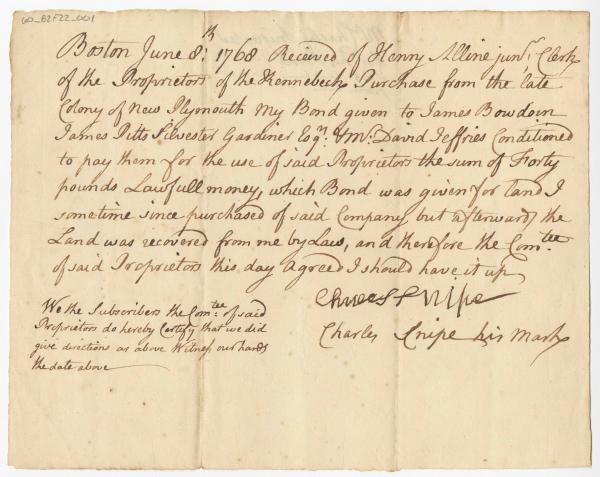 60_B2F22_001
Boston June 8th. 1768 Received of Henry Alline junr. Clerk
of the Proprietors of the Kennebeck Purchase from the late
Colony of New Plymouth My Bond given to James Bowdoin
James Pitts Silvester Gardiner Esqrs. & Mr. David Jeffries Conditioned
to pay them for the use of said Proprietors the sum of Forty
pounds Lawfull money, which Bond was given for land I
sometime since purchased of said Company but afterwards the
Land was recovered from me by Law, and therefore the Comtee
of said Proprietors this day Agreed I should have it up
Charles Snipe
Charles Snipe his Mark
We the Subscribers the Comtee of said
Proprietors do hereby Certify that we did
give directions as above Witness our hands
the date above